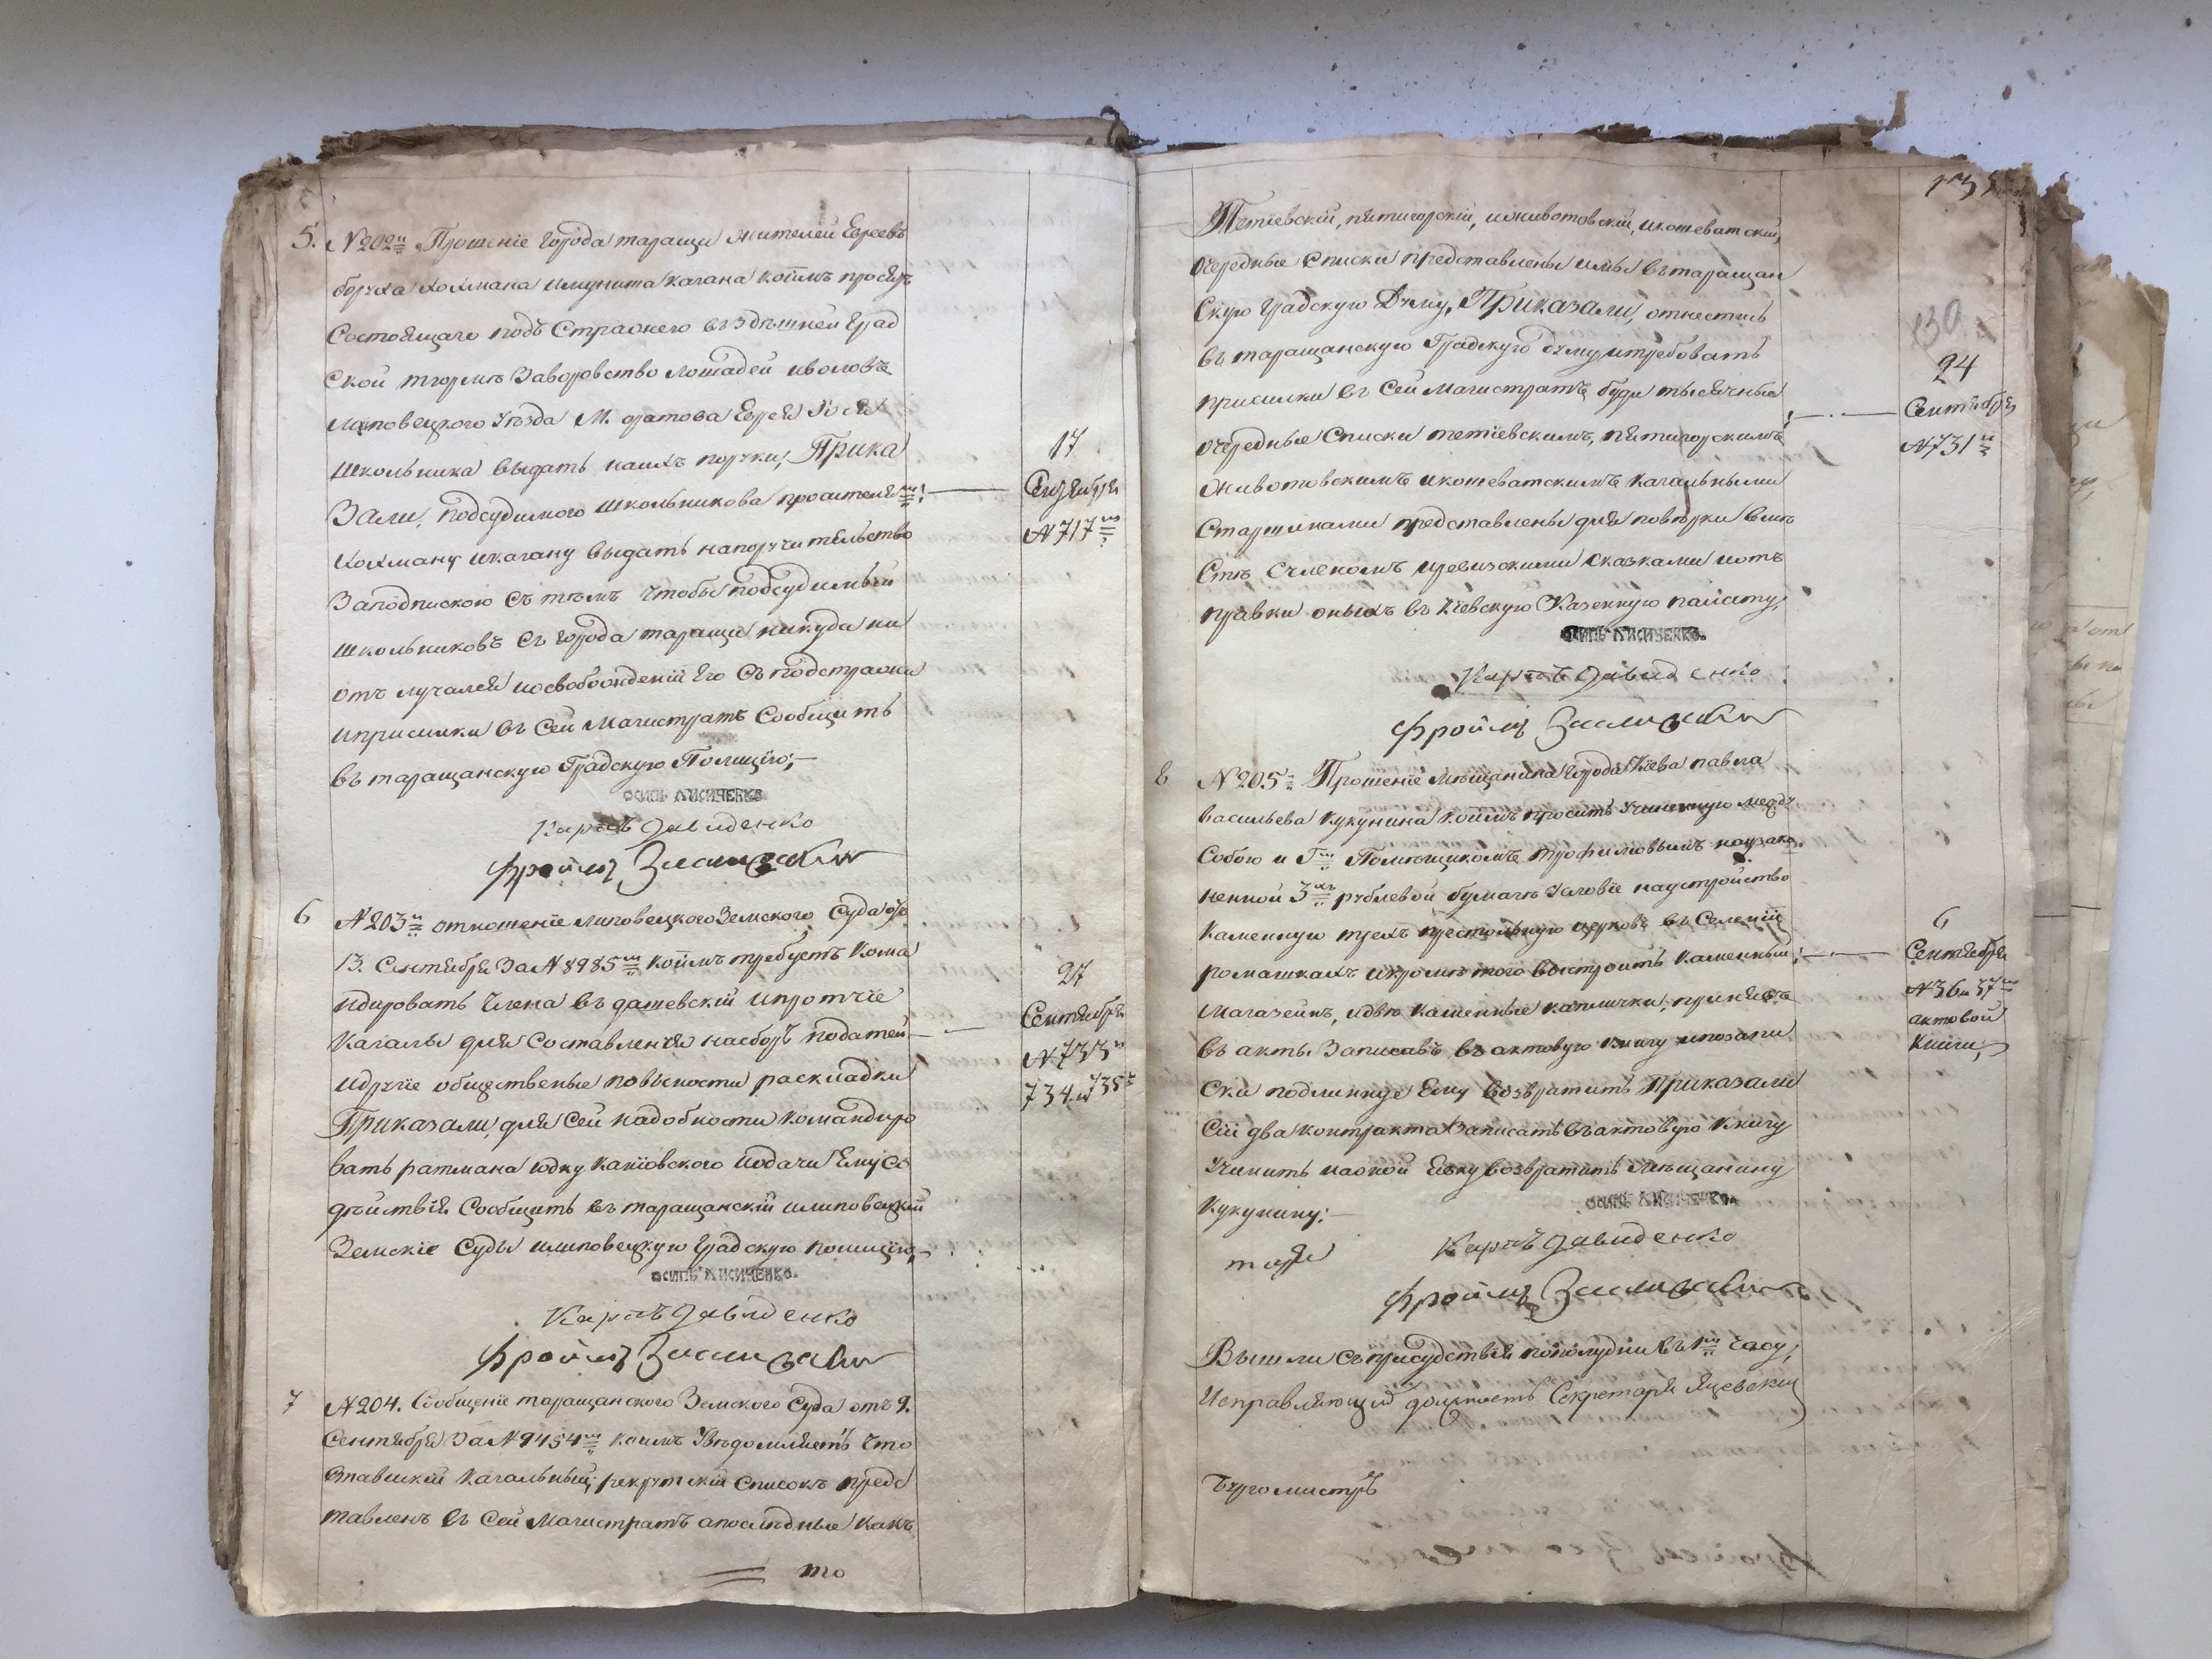 5. №202й Прошеніе города таращи жителей Евреевъ
боруха Хохмана имунита кагана коимъ просятъ
Состоящаго подъ Стражею въ здѣшней Град
ской тюрмѣ Заворовство лошадей иволовъ
липовецкого уѣзда М. Еврея
школьника выдать наихъ поруки, Прика
Зали, подсудимого школьникова просителямъ:
Хохману икагану выдать напоручительство
Заподпискою съ тѣмъ чтобы подсудимый
школьниковъ съ города таращи никуда ни
отлучался иосвобожденіи Его съ подстражи
иприсилки въ Сей Магистратъ Сообщить
въ таращанскую Градскую Полицію;
17
Сентября
№717го
ОСИПЪ ЛИСИЧЕНКО.
Карпъ Давиденко
Фроимъ
6 №203й отношеніе липовецкого Земского Суда отъ
13. Сентября За№8985мъ коимъ требуетъ кома
ндировать Члена въ дашевскій ипротчіе
кагалы для Составленія насборъ податей
идругіе общественые повиности раскладки
Приказали, для Сей надобности командиро
вать ратмана юдку каніовского иодачи Ему со
дѣйствія Сообщить въ таращанскій илиповецкій
Земскіе Суды илиповецкую градскую полицію,
27
Сентября
№733й
734.и735й
ОСИПЪ ЛИСИЧЕНКО.
Карпъ Давиденко
Фроимъ
7 №204. Сообщеніе таращанского Земского Суда отъ 9.
Сентября За№9454мъ коимъ Увѣдомляетъ что
Ставискій кагальный, рекрутскій Списокъ предс
тавленъ въ Сей Магистратъ апослѣдные какъ
то
Тетіевскій, пятигорскій, иживотовскій, икошеватскій,
Очередные Списки представлены имы въ таращан
Скую градскую Думу, Приказали, отнестись
въ таращанскую Градскую думу итребовать
присилки въ Сей Магистратъ буди тысячные
очередные Списки тетіевскимъ, пятигорскимъ
Животовскимъ икошеватскимъ кагальными
Старшинами представлены для повѣрки вмѣ
Стѣ Счленомъ иревизскими Сказками иотъ
правки оныхъ въ Кіевскую Казенную палату,
130
24
Сентября
№731й
ОСИПЪ ЛИСИЧЕНКО.
Карпъ Давиденко
Фроимъ
8 №205й Прошеніе мѣщанина города Кіева павла
васильева Кукунина коимъ проситъ учиненную между
Собою и Гмъ Помѣщикомъ трофимовымъ наузако
ненной 3хъ рублевой бумагѣ Условіе наустройство
каменную трехъ престольную церковь въ Селеніи
ромашкахъ икромѣ того выстроить каменный
Магазейнъ, идвѣ каменные каплички, принявъ
въ акты. Записавъ въ актовую книгу ипозапи
Ски подлинное Ему возвратить Приказали
Сіи два контракта Записать въ актовую книгу
Учинить наокой Евку возвратить Мѣщанину
Кукунину:
6
Сентября
№36и37го
актовой
Книги,
ОСИПЪ ЛИСИЧЕНКО.
Карпъ Давиденко
Фроимъ
Вышли съприсудствія пополудни въ 1мъ часу,
Исправляющій должность Секретаря Яцевскій
Бургомистръ